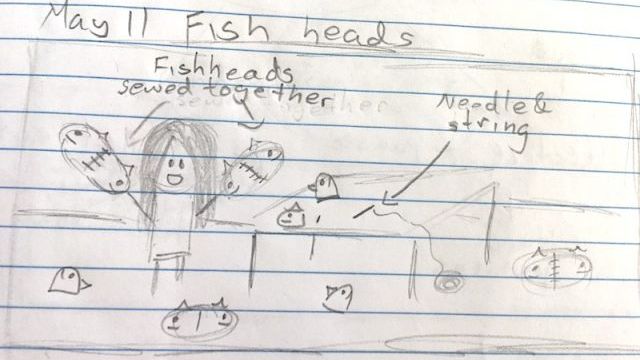 May 11 Fish heads
Fishheads
sewed together
Needle &
string